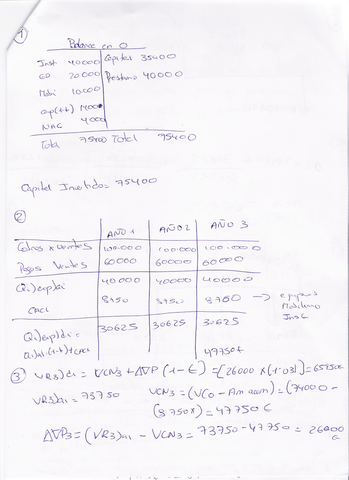 ①
Balance en 0
Inst 40000 Capital 35400
ED 20000 Prestamo 40000
Mobi 10000
cap(++) 1400
NAC 4000
Total 75400 Total 75400
Capital Invertido = 75400
②
AÑO 1 AÑO 2 AÑO 3
Cobros x Ventas 100.000 100000 100.000
Pagos Ventas 60000 60000 60000
Qi)expl ai 40000 40000 40000
CACI 8750 8750 8750 → equipos
Mobiliario
Inst
Qi)expl di = 30625 30625 30625
Qi)ai (1-t) + CACI
47750€
③ VR3) di = VCN3 + ΔVP (1-t) =
VR3)ai = 73750 VCN3 = (VCo - Am acum) = (74000 -
(8750x) = 47750 €
ΔVP3 = (VR3)ai - VCN3 = 73750 - 47750 = 26000
€